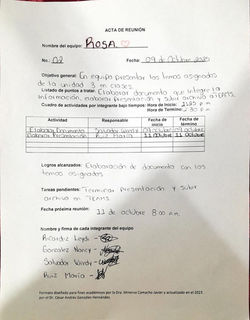 ACTA DE REUNIÓN
Nombre del equipo: ROSA ♡
No.: 02 Fecha: 09 de Octubre 2025
Objetivo general: En equipo presentar los temas asignados
de la unidad 3 en clases.
Listado de puntos a tratar: Elaborar documento que integre la
información, elaborar presentación y subir archivo a TEAMS.
Cuadro de actividades por integrante bajo tiempos: Hora de Inicio:
Hora de Termino:
Actividad Responsable Fecha de inicio Fecha de término
Elaborar Documento Salvador Wendy
Elaborar Presentación Ruiz María 11 Octubre 11 Octubre
Logros alcanzados: Elaboración de documento con los
temas asignados.
Tareas pendientes: Terminar Presentación y subir
archivo en TEAMS.
Fecha próxima reunión: 11 de octubre 8:00 a.m.
Nombre y firma de cada integrante del equipo
Ricardez Leydi
González Nancy
Salvador Wendy
Ruiz María
Formato diseñado para fines académicos por la Dra. Minerva Camacho Javier y actualizado en el 2023
por el Dr. César Andrés González Hernández.